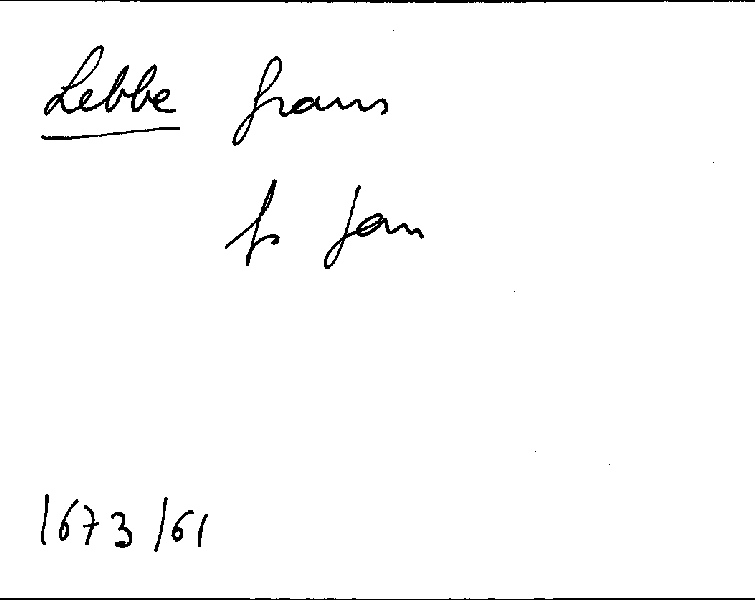 Lebbe frans
fs Jan
1673/61